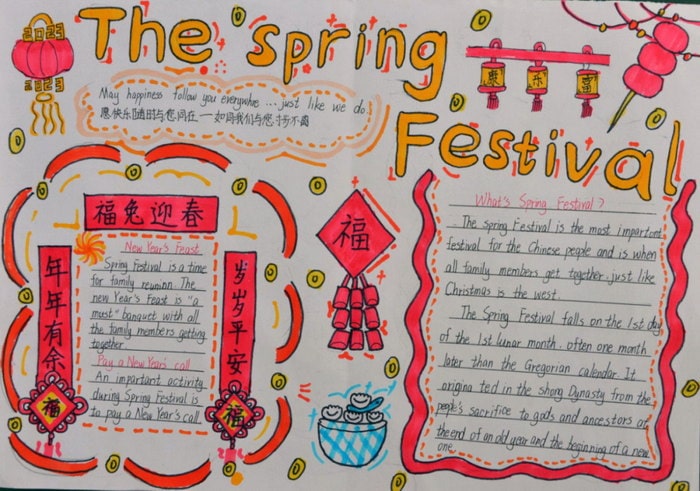 The spring
Festival
2023
2023
康 乐 富
May happiness follow you everywhre ... just like we do.
愿快乐随时与您同在一如同我们与您
福兔迎春
年年有余
岁岁平安
福
福
福
New Year's Feast
Spring Festival is a time
for family reunion. The
new Year's Feast is "a
must" banquet with all
the family members getting
together
Pay a New Year's call
An important activity
during Spring Festival is
to pay a New Year's call
What's Spring Festival?
The Spring Festival is the most important
festival for the Chinese people and is when
all family members get together. just like
Christmas is the west.
The Spring Festival falls on the 1st day
of the 1st lunar month. often one month
later than the Gregorian calendar. It
origina ted in the shang Dynasty from the
people's sacrifice to gods and ancestors at
the end of an old year and the beginning of a new
one.